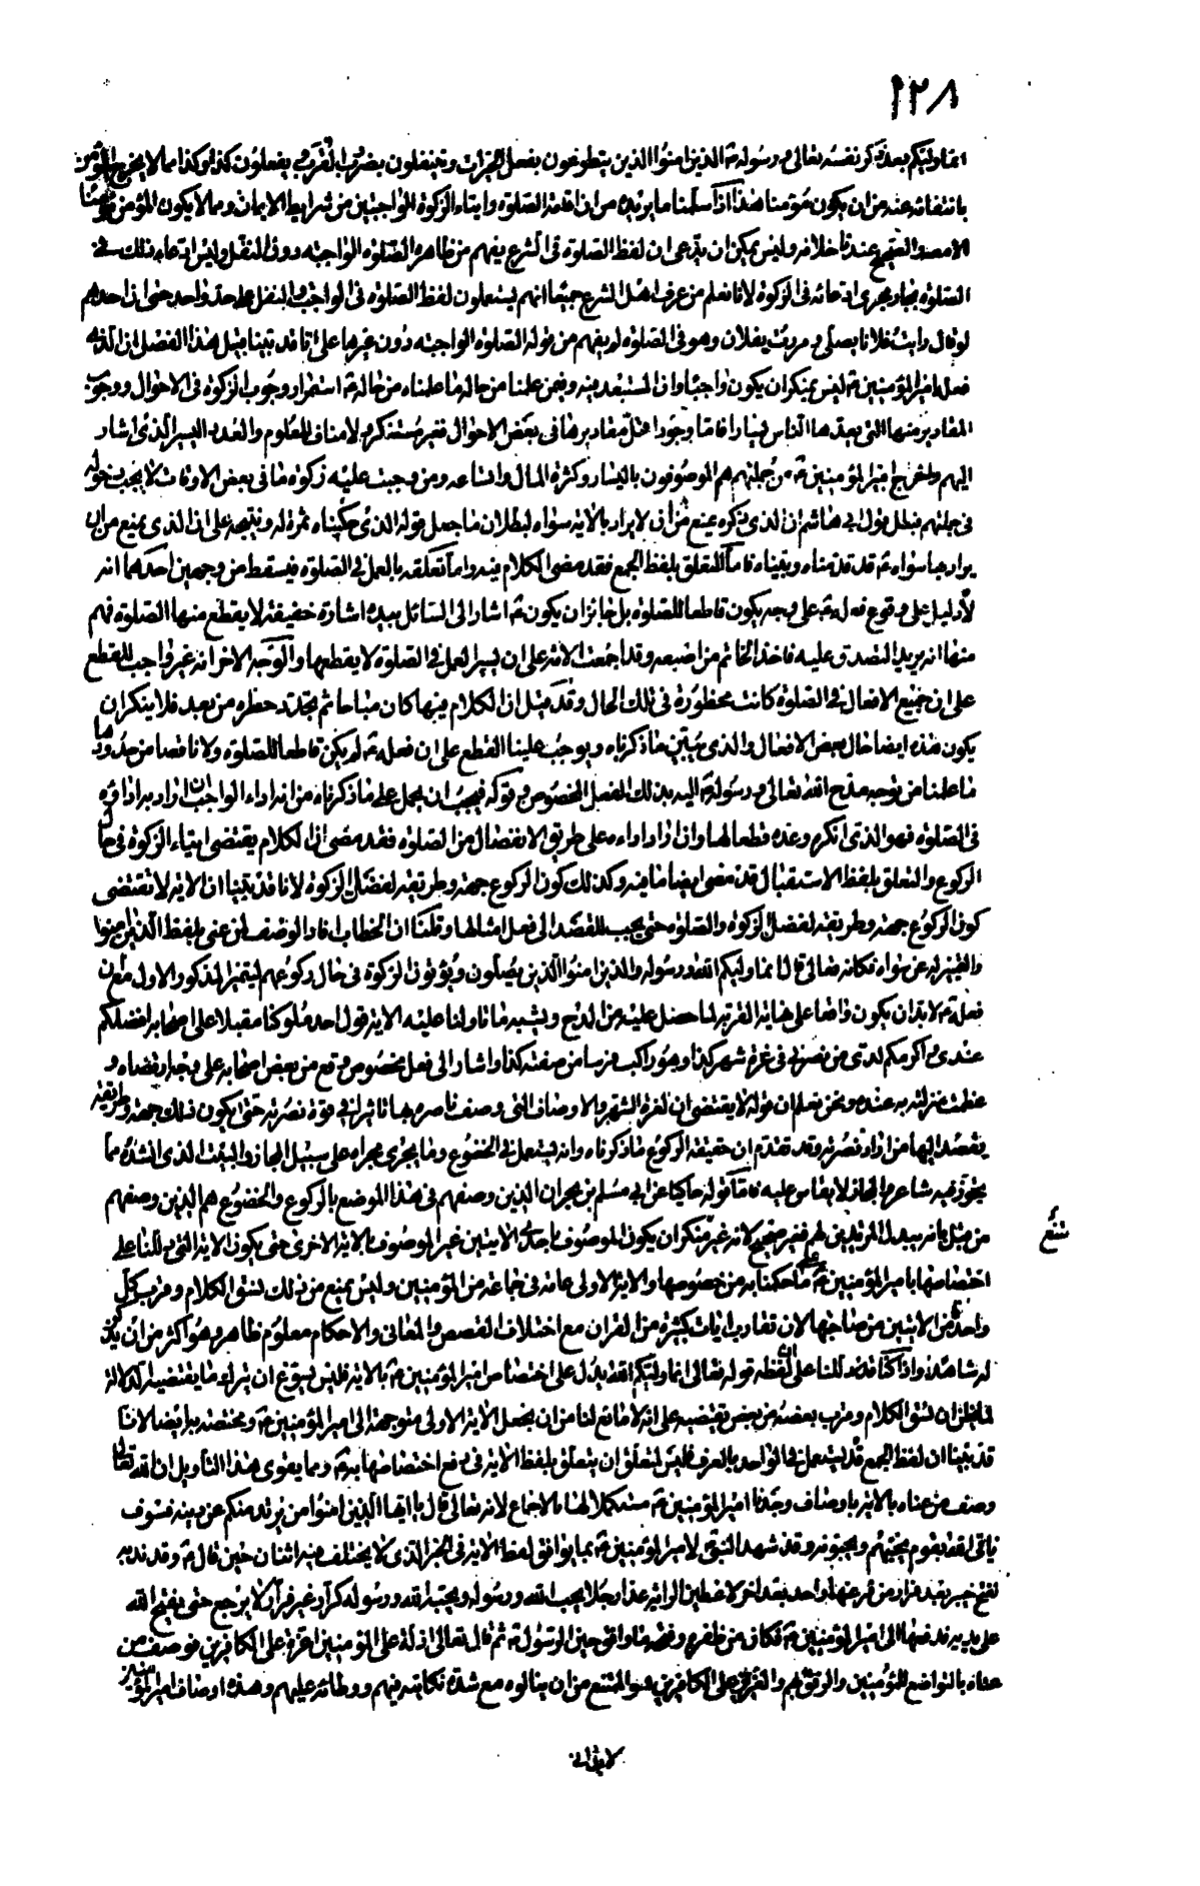 ١٢٨
انما وليكم بعد ذكر نفسه تعالى ورسوله ع الذين امنوا الذين يتطوعون بفعل الخيرات ويتنفلون بضروب القرب ويفعلون كذا وكذا مما لا يخرج المؤمن
بانتفائه عنه من ان يكون مؤمنا هذا اذا سلمنا ما يريده من ان اقامة الصلوة وايتاء الزكوة الواجبتين من شرايط الايمان ومما لا يكون المؤمن مؤمنا
الا معه والصحيح عندنا خلافه وليس يمكن ان يدعى ان لفظ الصلوة في الشرع يفهم من ظاهره الصلوة الواجبة دون النفل وليس ادعاء ذلك في
الصلوة بجار مجرى ادعائه في الزكوة لانا نعلم من عرف اهل الشرع جميعا انهم يستعملون لفظ الصلوة في الواجب والنفل على حد واحد حتى ان احدهم
لو قال رايت فلانا يصلى ومررت بفلان وهو في الصلوة لم يفهم من قوله الصلوة الواجبة دون غيرها على انا قد بينا قبيل هذا الفصل ان الذى
فعله امير المؤمنين ع ليس بمنكر ان يكون واجبا وان المستبعد فيه ونحن علمنا من حاله ما علمناه من حاله ع استمرار وجوب الزكوة في الاحوال ووجوب
المقادير منها التى يعد بها الناس يسارا فاما وجود اقل مقاديرها في بعض الاحوال فغير مستنكر ولا مناف للمعلوم والعدد اليسير الذى اشار
اليهم واخرج امير المؤمنين ع من جملتهم هم الموصوفون باليسار وكثرة المال واتساعه ومن وجبت عليه زكوة ما في بعض الاوقات لا يجب دخوله
في جملتهم فبطل قول ابى هاشم ان الذى ذكره يمنع من ان لا يراد بالاية سواه لبطلان ما جعل قوله الذى حكيناه ثمرة له ونتيجة على ان الذى يمنع من ان
يراد بها سواه ع قد قدمناه وبيناه فاما التعلق بلفظ الجمع فقد مضى الكلام فيه واما تعلقه بالعمل في الصلوة فيسقط من وجهين احدهما انه
لا دليل على وقوع فعله ع على وجه يكون قاطعا للصلوة بل جائز ان يكون ع اشار الى السائل بيده اشارة خفيفة لا يقطع منها الصلوة فهم
منها انه يريد التصدق عليه فاخذ الخاتم من اصبعه وقد اجمعت الامة على ان يسير العمل في الصلوة لا يقطعها والوجه الاخر انه غير واجب القطع
على ان جميع الافعال في الصلوة كانت محظورة في تلك الحال وقد قيل ان الكلام فيها كان مباحا ثم تجدد حظره من بعد فلا ينكر ان
يكون هذه ايضا حال بعض الافعال والذى يبين ما ذكرناه ويوجب علينا القطع على ان فعله ع لم يكن قاطعا للصلوة ولا ناقصا من حدودها
ما علمنا من توجه مدح الله تعالى ورسوله ع اليه بذلك الفعل المخصوص وقوله فيجب ان يحمل على ما ذكرناه من انه اداء الواجب ان اراد به اداؤه
في الصلوة فهو الذى انكره وعده قطعا لها وان اراد اداءه على طريق الانفصال من الصلوة فقد مضى ان الكلام يقتضى ايتاء الزكوة في حال
الركوع والتعلق بلفظ الاستقبال قد مضى ايضا ما فيه وكذلك كون الركوع جهة وطريقة لفضل الزكوة لانا قد بينا ان الاية لا تقتضى
كون الركوع جهة وطريقة لفضل الزكوة والصلوة حتى يجب القصد الى فعل امثالها وقلنا ان الخطاب افاد الوصف لمن عنى بلفظ الذين امنوا
والتمييز له عن سواه فكانه تعالى قال انما وليكم الله ورسوله والذين امنوا الذين يصلون ويؤتون الزكوة في حال ركوعهم ليتميز المذكور الاول من
فعله ع لا بد ان يكون واقعا على غاية القربة لما حصل عليه من المدح ويشبه ما تاولنا عليه الاية قول احد ملوكنا مقبلا على اصحابه افضلكم
عندى واكرمكم لدى من نصرنى في غرة شهر كذا وهو راكب فرسا من صفته كذا واشار الى فعل مخصوص وقع من بعض اصحابه على وجه ارتضاه و
عظمت منزلته به عنده ونحن نعلم ان قوله لا يقتضى ان لغرة الشهر والاوصاف التى وصف ناصره بها تاثيرا في قوة نصرته حتى يكون ذلك جهة وطريقة
يقصد اليها من اراد نصرته وقد تقدم ان حقيقة الركوع ما ذكرناه وانه يستعمل في الخضوع وما يجرى مجراه على سبيل المجاز والبيت الذى انشده مما
يجوز فيه شاعره والمجاز لا يقاس عليه فاما قوله حاكيا عن ابى مسلم بن بحر ان الذين وصفهم في هذا الموضع بالركوع والخضوع هم الذين وصفهم
من قبل بانه يبدل المرتدين بهم فغير صحيح لانه غير منكر ان يكون الموصوف باحدى الايتين غير الموصوف بالاية الاخرى حتى يكون الاية التى دللنا على
اختصاصها بامير المؤمنين ع على ما حكمنا به من خصوصها والاية الاولى عامة في جماعة من المؤمنين وليس يمنع من ذلك نسق الكلام وقرب كل
واحدة من الايتين من صاحبتها لان تقارب ايات كثيرة من القران مع اختلاف القصص والمعانى والاحكام معلوم ظاهر وهو اكثر من ان يذكر
له شاهد واذا كنا قد دللنا على ان لفظة قوله تعالى انما وليكم الله يدل على اختصاص امير المؤمنين ع بالاية فليس يسوغ ان يترك ما يقتضيه الدلالة
لما يظن ان نسق الكلام وقرب بعضه من بعض تقتضيه على انه لا مانع لنا من ان يجعل الاية الاولى متوجهة الى امير المؤمنين ع ومختصة به ايضا لانا
قد بينا ان لفظ الجمع قد يستعمل في الواحد بالعرف فليس لمتعلق ان يتعلق بلفظ الاية في دفع اختصاصها به ع ومما يقوى هذا التاويل ان الله تعالى
وصف من عناه بالاية باوصاف وجدنا امير المؤمنين ع مستكملا لها بالاجماع لانه تعالى قال يا ايها الذين امنوا من يرتد منكم عن دينه فسوف
ياتى الله بقوم يحبهم ويحبونه وقد شهد النبى ع لامير المؤمنين ع بما يوافق لفظ الاية في الخبر الذى لا يختلف فيه اثنان حين قال ع وقد ندبه
لفتح خيبر بعد فرار من فر عنها واحد بعد اخر لاعطين الراية غدا رجلا يحب الله ورسوله ويحبه الله ورسوله كرار غير فرار لا يرجع حتى يفتح الله
على يديه فدفعها الى امير المؤمنين ع فكان من ظفره وفتحه ما وافق خبر الرسول ع ثم قال تعالى اذلة على المؤمنين اعزة على الكافرين فوصف من
عناه بالتواضع للمؤمنين والرفق بهم والعزة على الكافرين هو الممتنع من ان ينالوه مع شدة نكايته فيهم ووطائه عليهم وهذه اوصاف امير المؤمنين